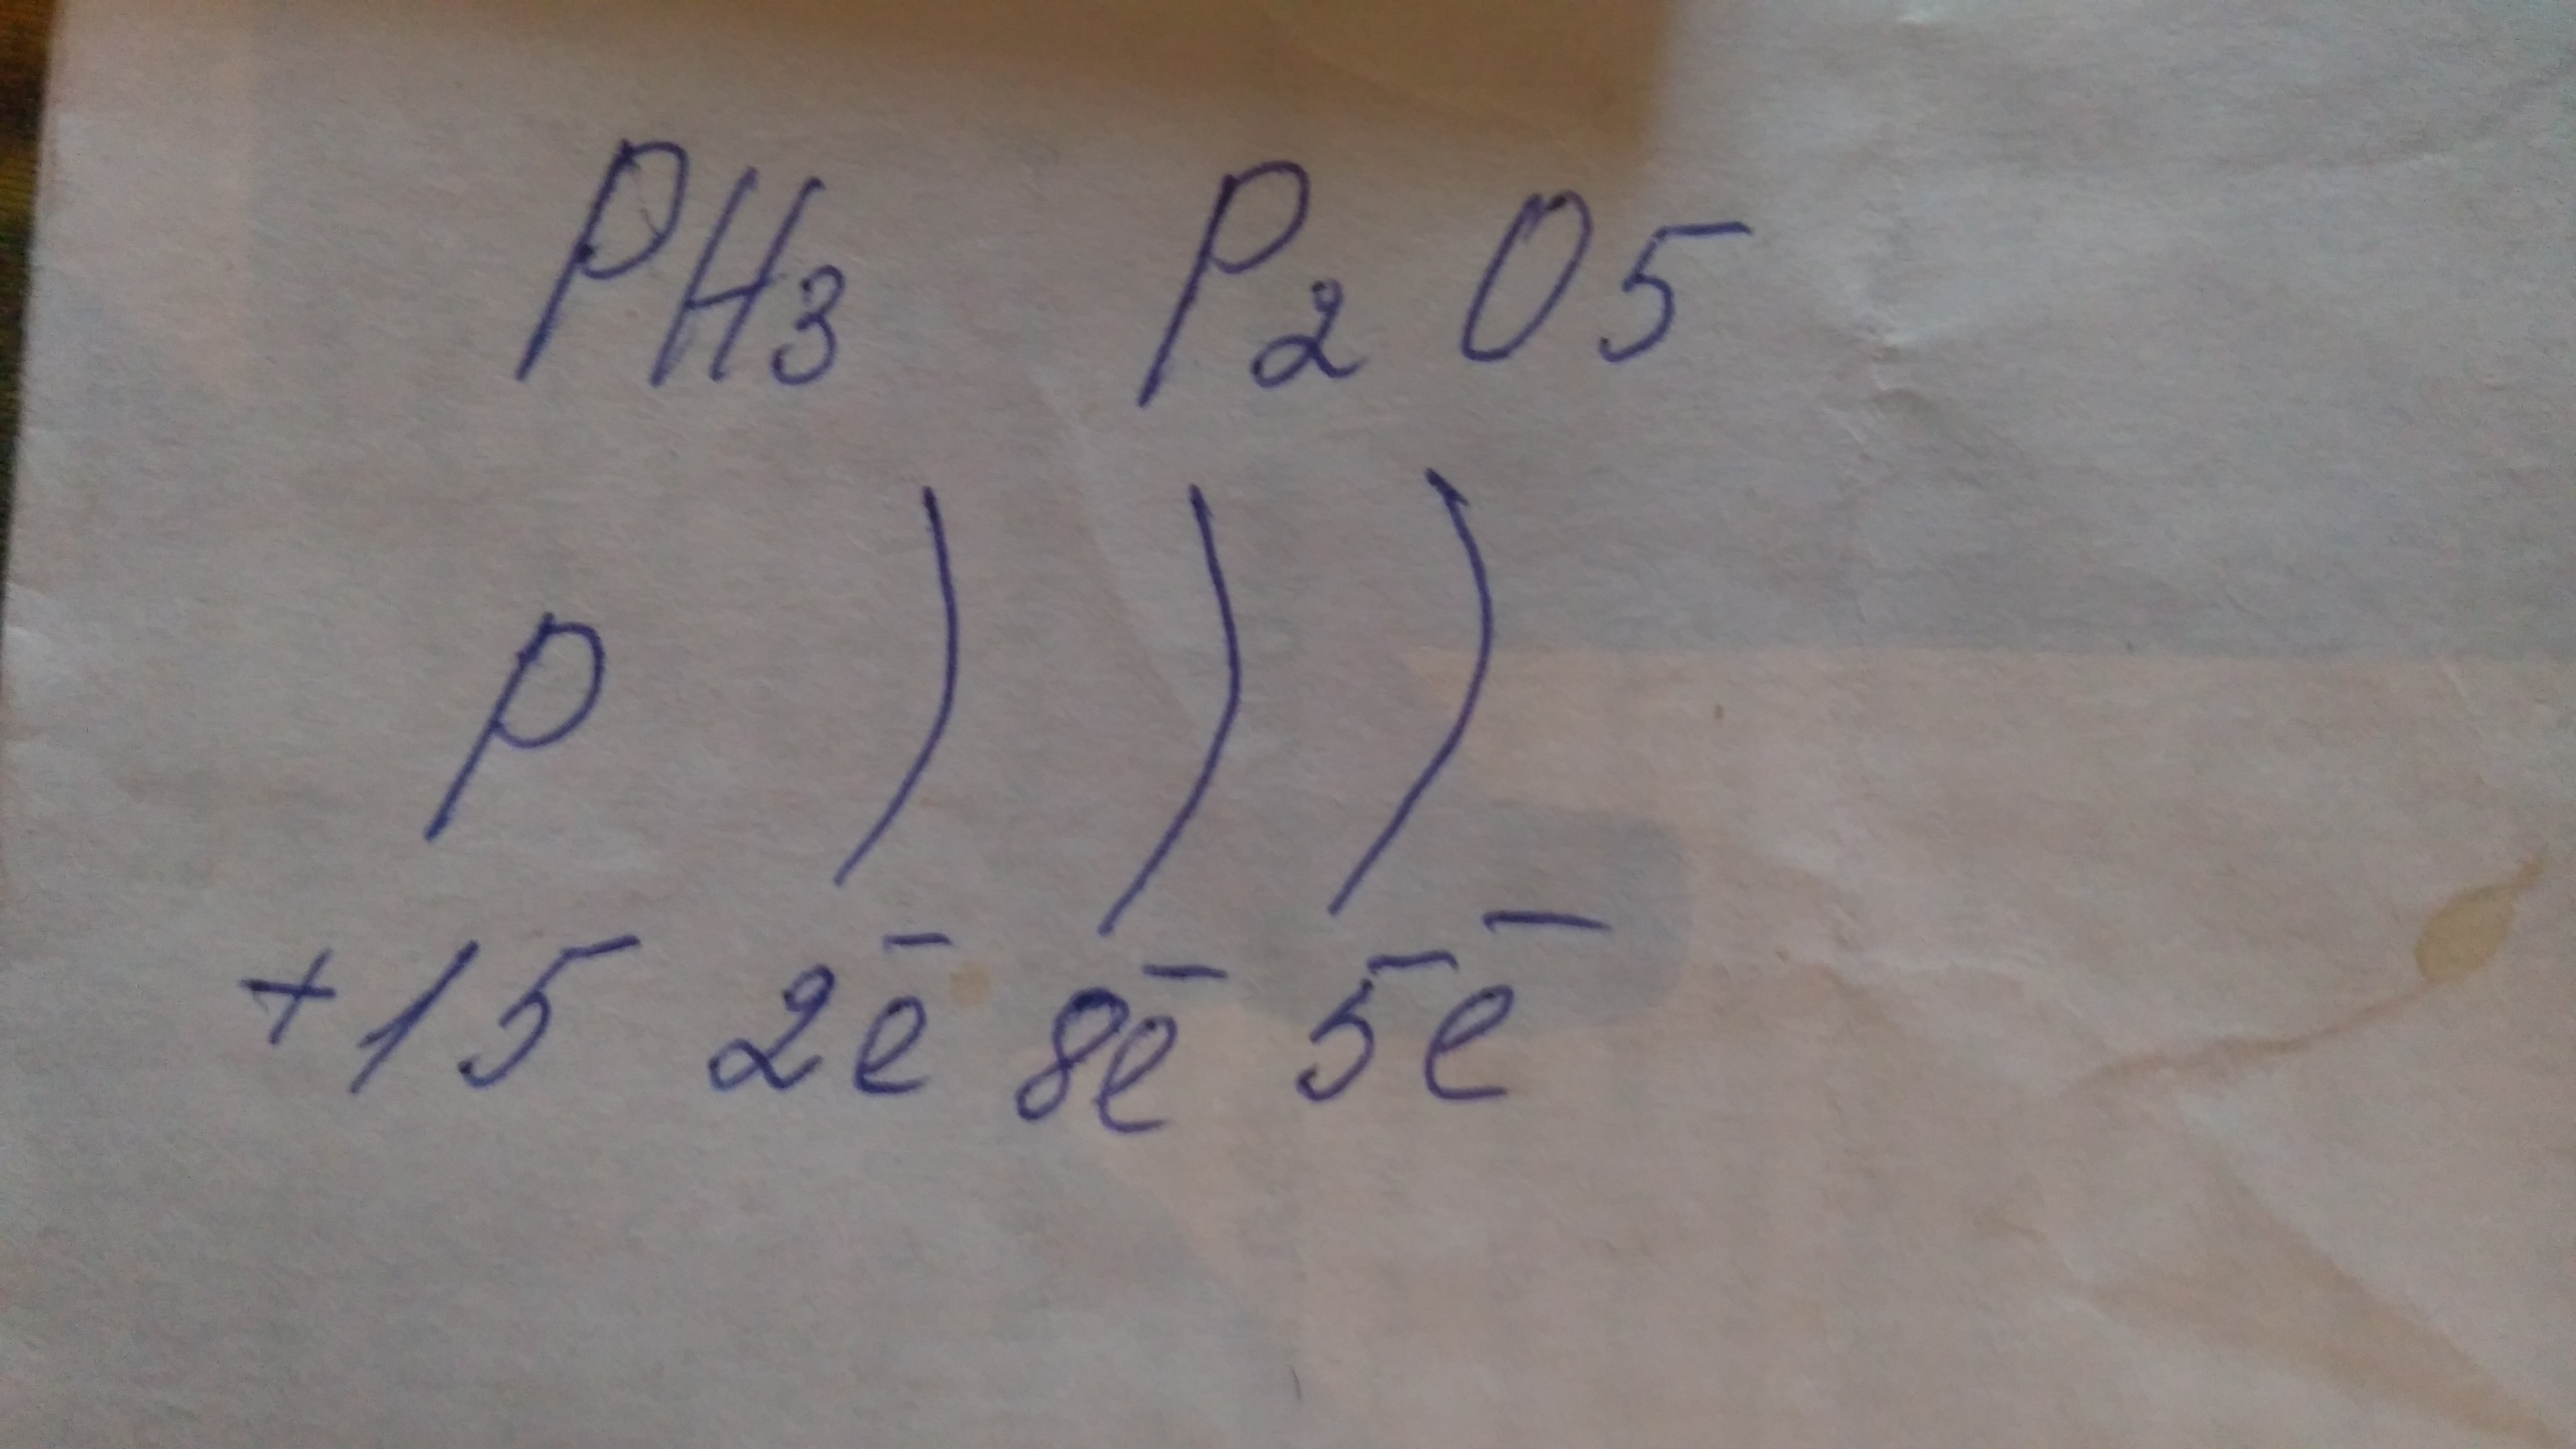 PH3 P2O5
P ) ) )
+15 2e̅ 8e̅ 5e̅